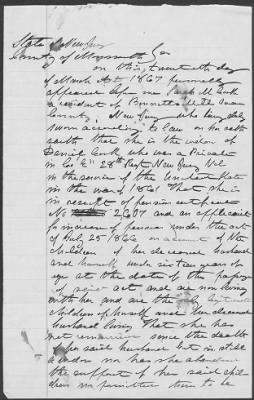 State of New Jersey
County of Monmouth ss
on this, twentieth day
of March AD 1867 personally
appeared before me Sarah M
a resident of Burnetts Mill
County, New Jersey who being duly
sworn according to law on her oath
saith that she is the widow of
Daniel who was a Private
in Co "E" 28th Regt New Jersey Vol
in the service of the United States
in the war of 1861 That she is
in receipt of pension certificate
No 2607 and an applicant
for increase of pension under the act
of July 25 1866 on account of the
children of her deceased husband
and herself under sixteen years of
age at the date of the passage
of said act and are now living
with her and are the only legitimate
children of herself and her deceased
husband living That she has
not remarried since the death
of her said husband but is still
a widow nor has she abandoned
the support of her said children
or permitted them to be